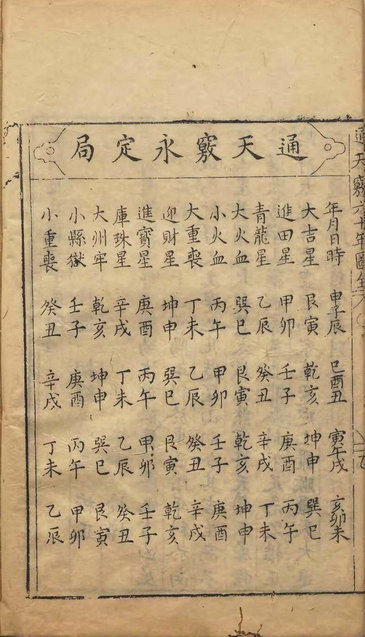 通天竅六十年圖
通天竅永定局
年月日時 申子辰 巳酉丑 寅午戌 亥卯未
大吉星 艮寅 乾亥 坤申 巽巳
進田星 甲卯 壬子 庚酉 丙午
青龍星 乙辰 癸丑 辛戌 丁未
大火血 巽巳 艮寅 乾亥 坤申
小火血 丙午 甲卯 壬子 庚酉
大重喪 丁未 乙辰 癸丑 辛戌
迎財星 坤申 巽巳 艮寅 乾亥
進寶星 庚酉 丙午 甲卯 壬子
庫珠星 辛戌 丁未 乙辰 癸丑
大州牢 乾亥 坤申 巽巳 艮寅
小縣獄 壬子 庚酉 丙午 甲卯
小重喪 癸丑 辛戌 丁未 乙辰